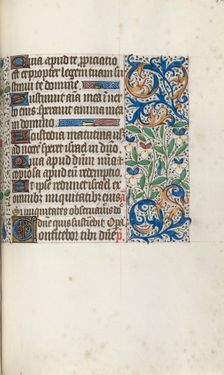 Quia apud te propiciatio
est et propter legem tuam sus
tinui te domine
Sustinuit aīa mea in v
bo eius speravit anima mea
in domino
A custodia matutina
ad noctem speret israel in dn̄o
Quia apud dn̄m mīa et
copiosa apud eum redemptio
Et ipse redimet israel ex
omnibus iniquitatibus eius
Si iniquitates observaveris do
dn̄e quis sustinebit. Opa
Confitebor tibi dn̄e